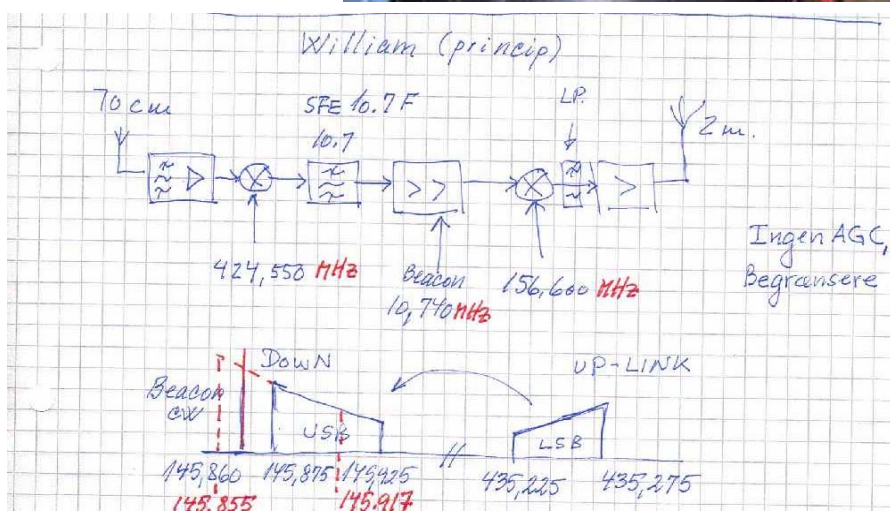 William (princip)
70 cm
SFE 10.7 F
10.7
LP.
2 m.
424,550 MHz
Beacon
10,740 MHz
156,600 MHz
Ingen AGC,
Begrænsere
Beacon
CW
DOWN
USB
UP-LINK
LSB
145,860 145,875 145,925 // 435,225 435,275
145.855 145.917